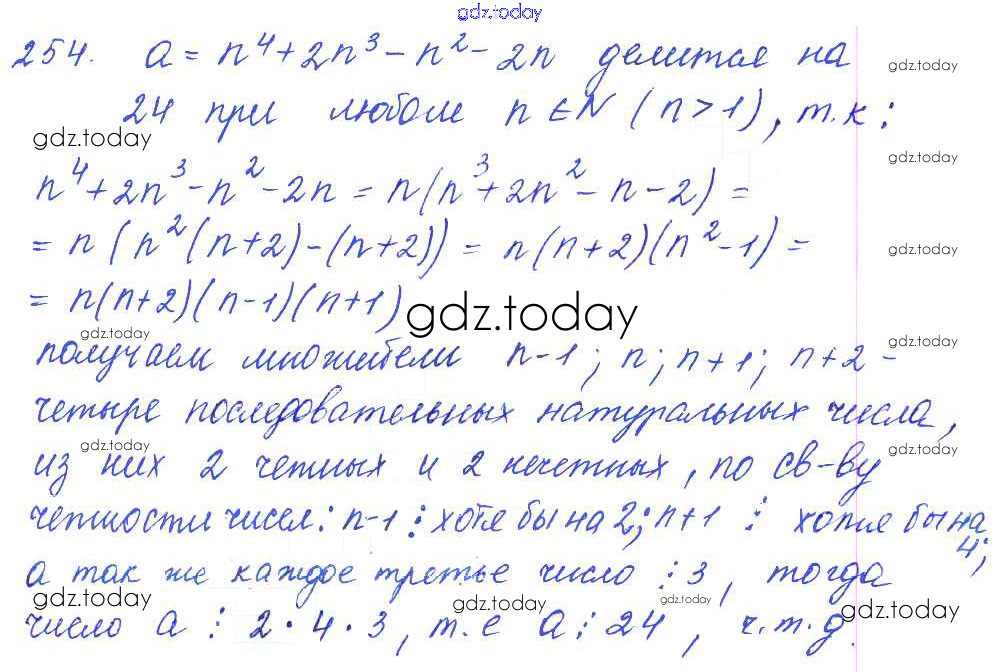 gdz.today
254. a = n⁴ + 2n³ - n² - 2n делится на
gdz.today
24 при любом n ∈ N (n > 1), т.к:
gdz.today
gdz.today
n⁴ + 2n³ - n² - 2n = n(n³ + 2n² - n - 2) =
= n(n²(n+2) - (n+2)) = n(n+2)(n² - 1) =
gdz.today
= n(n+2)(n-1)(n+1)
gdz.today
gdz.today
gdz.today
получаем множители n-1; n; n+1; n+2 -
четыре последовательных натуральных числа,
gdz.today
gdz.today
из них 2 четных и 2 нечетных, по св-ву
четности чисел: n-1 ⋮ хотя бы на 2; n+1 ⋮ хотя бы на 4;
а так же каждое третье число ⋮ 3, тогда
gdz.today
gdz.today
gdz.today
gdz.today
число a ⋮ 2 · 4 · 3, т.е a ⋮ 24, ч.т.д.